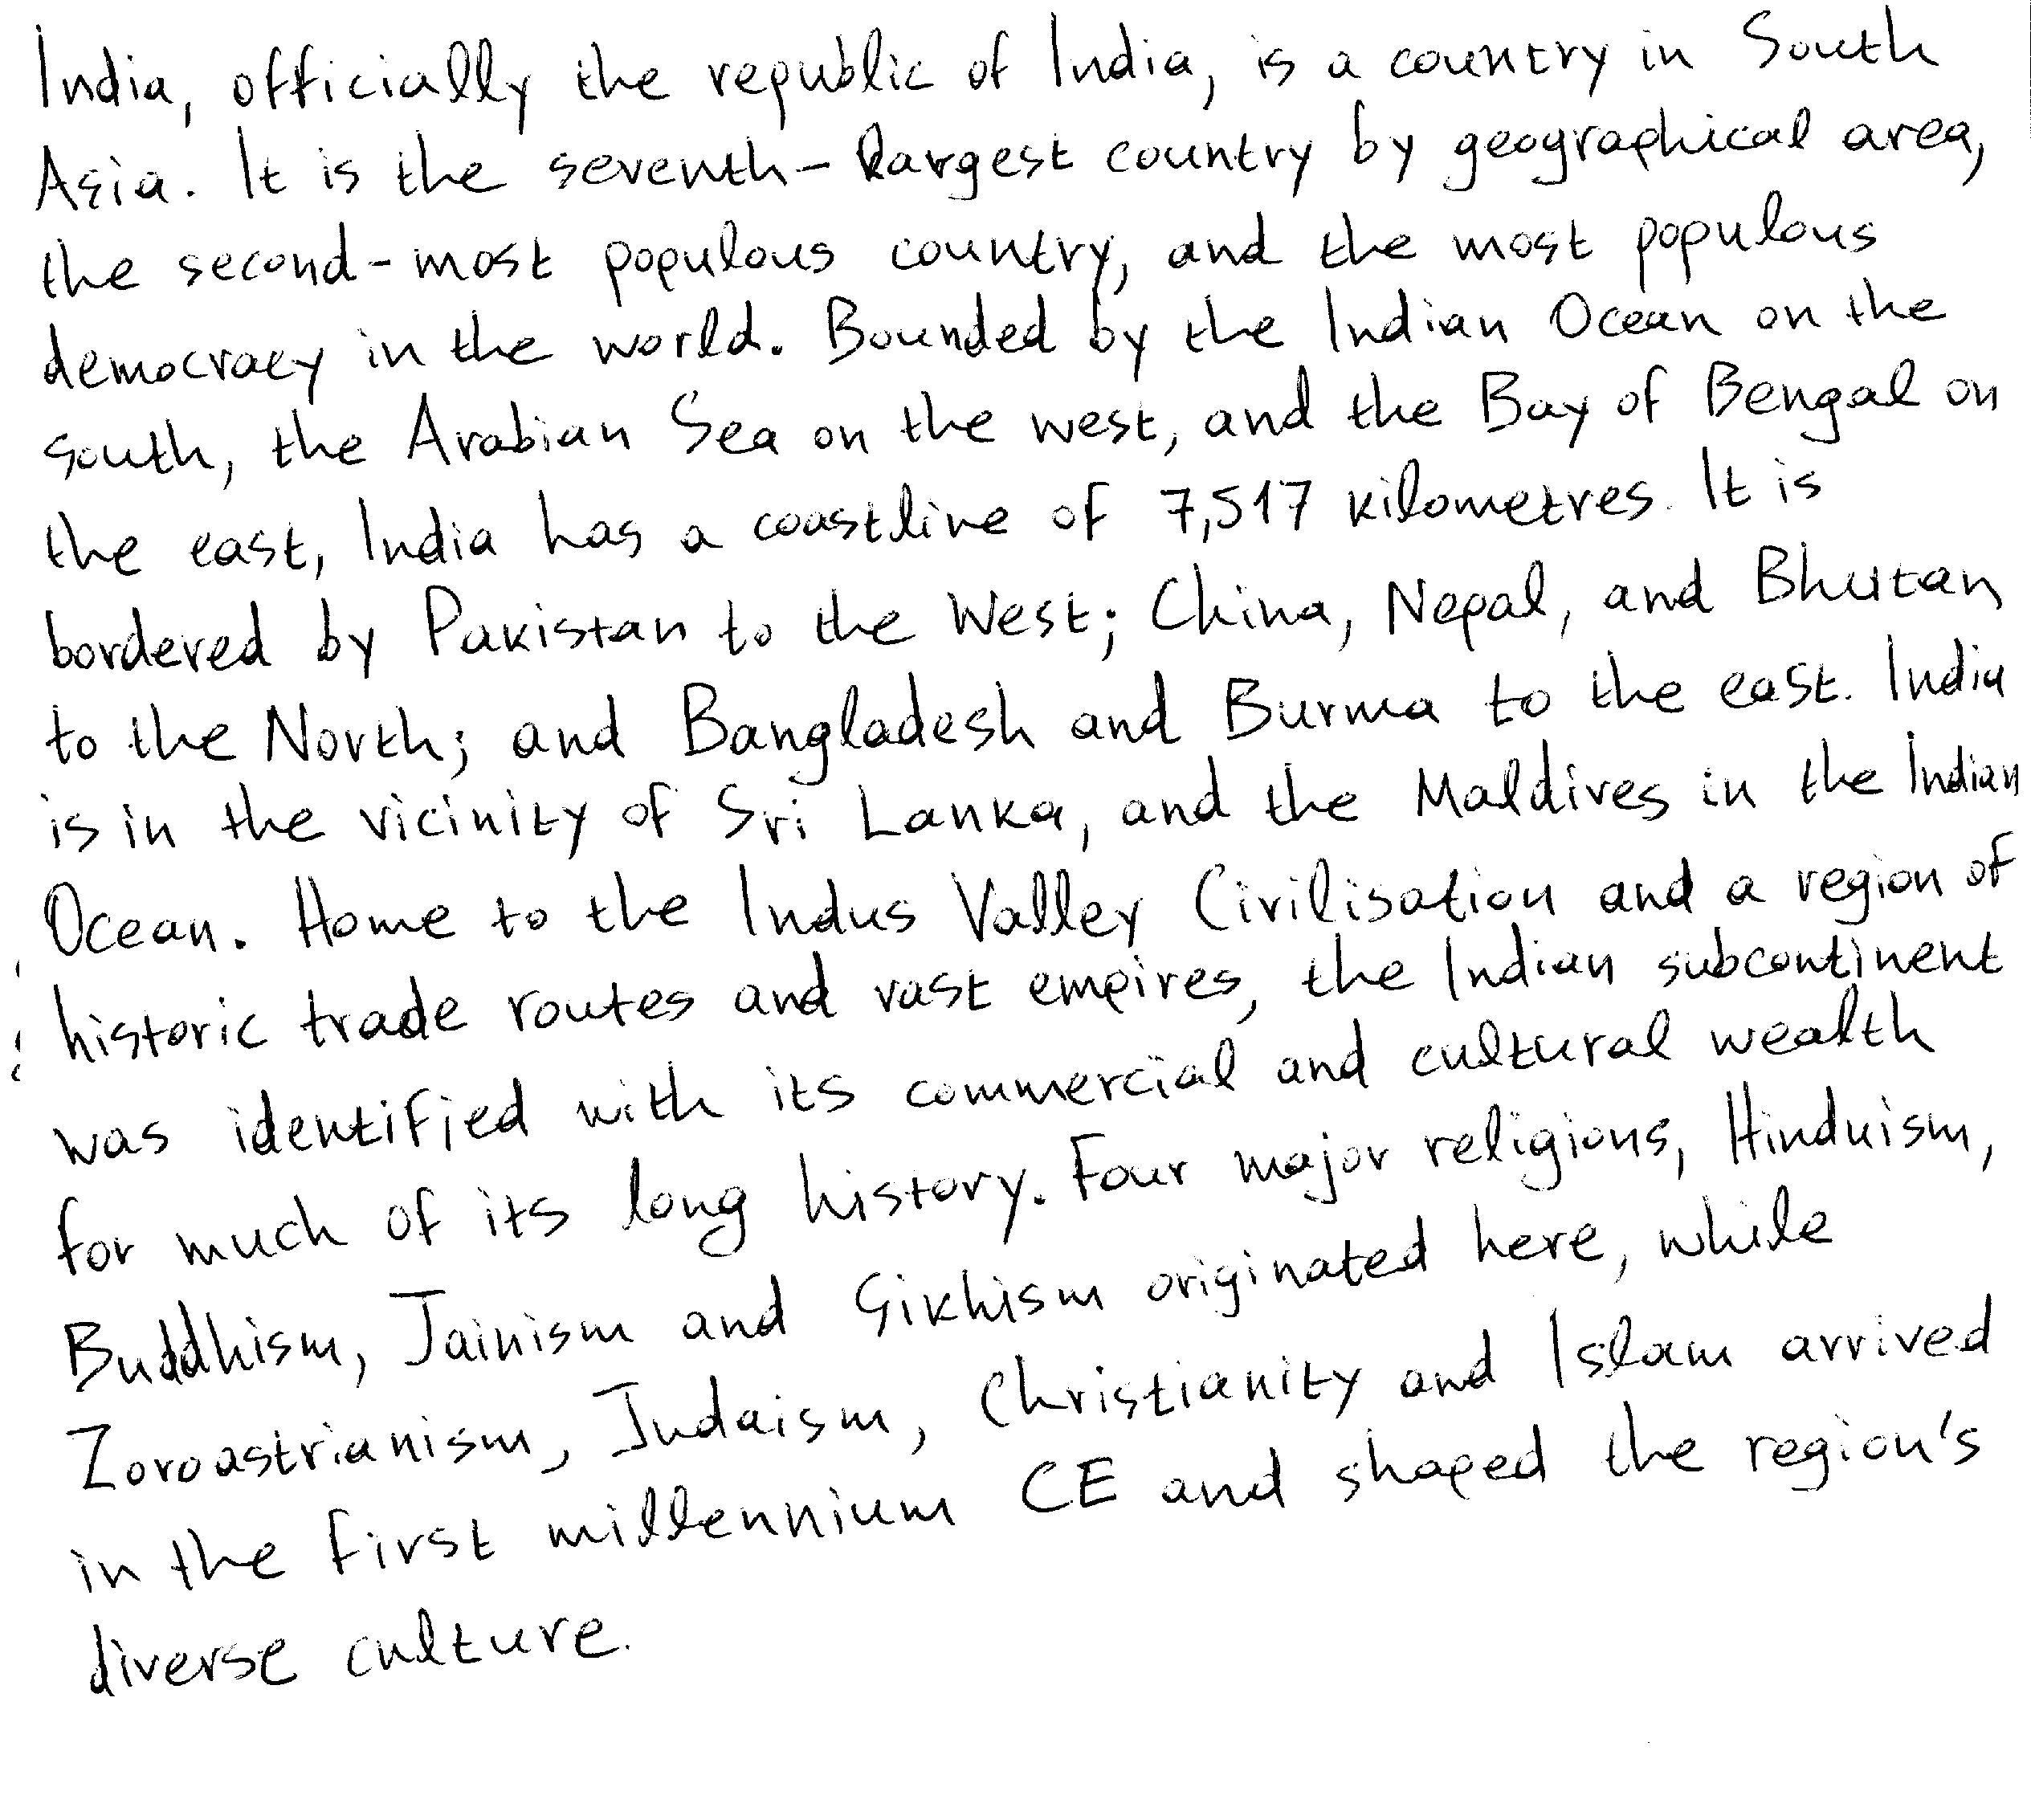 India, officially the republic of India, is a country in South
Asia. It is the seventh-largest country by geographical area,
the second-most populous country, and the most populous
democracy in the world. Bounded by the Indian Ocean on the
south, the Arabian Sea on the west, and the Bay of Bengal on
the east, India has a coastline of 7,517 kilometres. It is
bordered by Pakistan to the West; China, Nepal, and Bhutan
to the North; and Bangladesh and Burma to the east. India
is in the vicinity of Sri Lanka, and the Maldives in the Indian
Ocean. Home to the Indus Valley Civilisation and a region of
historic trade routes and vast empires, the Indian subcontinent
was identified with its commercial and cultural wealth
for much of its long history. Four major religions, Hinduism,
Buddhism, Jainism and Sikhism originated here, while
Zoroastrianism, Judaism, Christianity and Islam arrived
in the first millennium CE and shaped the region's
diverse culture.